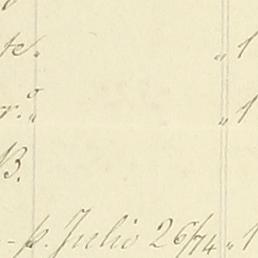 te. „ 1
r.º „ „ 1
B.
- p. Julio 26/74 „ 1